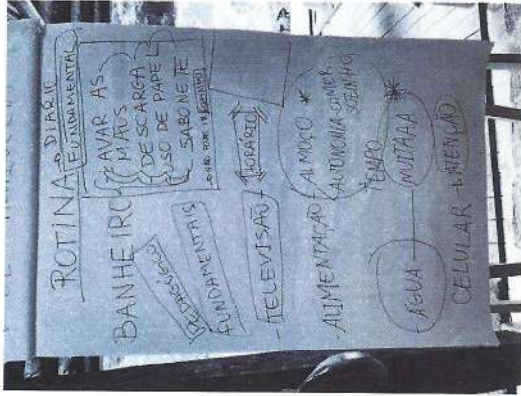 ROTINA → DIÁRIO
FUNDAMENTAL
BANHEIRO
LAVAR AS
MÃOS
DESCARGA
USO DE PAPEL
SABONETE
FUNDAMENTAIS
- TELEVISÃO → HORÁRIO
- ALIMENTAÇÃO → ALMOÇO *
AUTONOMIA COMER
SOZINHO
TEMPO
ÁGUA — MUITAAA *
CELULAR → ATENÇÃO